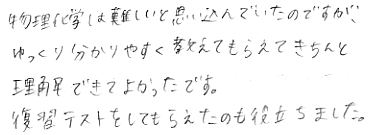 物理化学は難しいと思い込んでいたのですが、
ゆっくり分かりやすく教えてもらえてきちんと
理解できてよかったです。
復習テストをしてもらえたのも役立ちました。